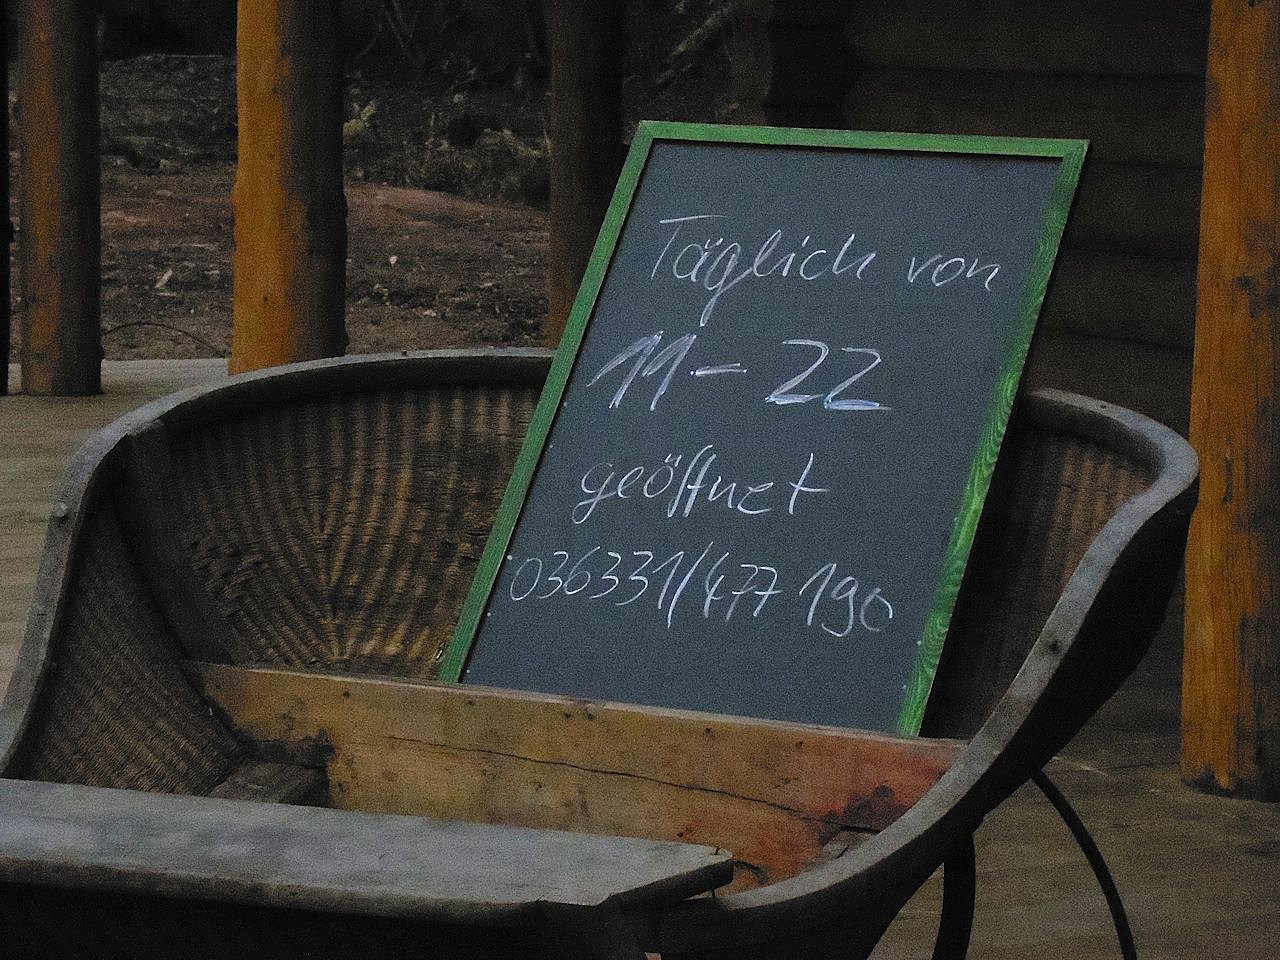 Täglich von
11 - 22
geöffnet
036331/477 190